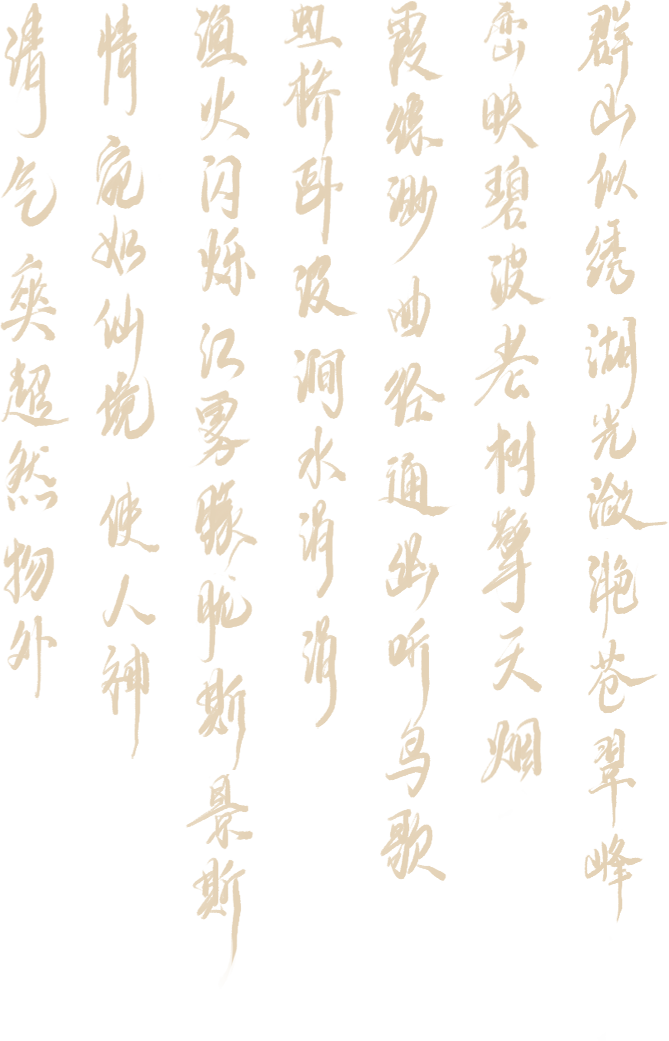 群山似绣湖光潋滟苍翠峰
峦映碧波老树擎天烟
霞缥渺曲径通幽听鸟歌
虹桥卧波涧水涓涓
渔火闪烁江雾朦胧斯景斯
情宛如仙境使人神
清气爽超然物外